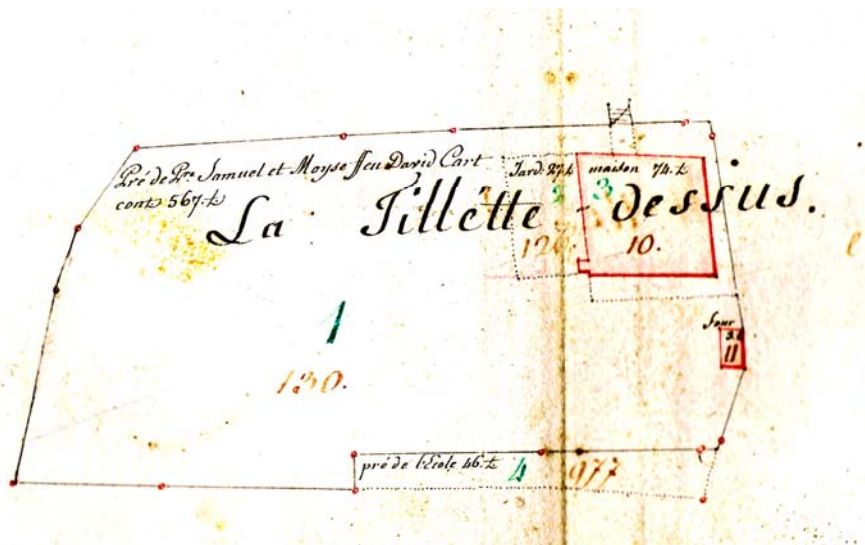 Pré de Pre Samuel et Moyse ffeu David Cart
cont 567. t
Jard. 27 t
maison 74. t
2
3
La Tillette - dessus.
126.
10.
four
3. t
11
1
130.
pré de l'Ecole 46. t
4
977